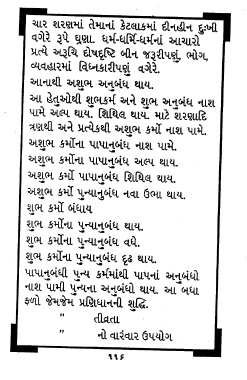 ચાર શરણમાં તેમાનાં કેટલાકમાં દીનહીન દુઃખી
વગેરે રૂપે ઘૃણા. ધર્મ-ધર્મિ-ધર્મનાં આચારો
પ્રત્યે અરૂચિ દોષદૃષ્ટિ બીન જરૂરીપણું, ભોગ,
વ્યવહારમાં વિઘ્નકારીપણું વગેરે.
આનાથી અશુભ અનુબંધ થાય.
આ હેતુઓથી શુભકર્મ અને શુભ અનુબંધ નાશ
પામે. અલ્પ થાય. શિથિલ થાય. માટે શરણાદિ
ત્રણથી અને પ્રત્યેકથી અશુભ કર્મો નાશ પામે.
અશુભ કર્મોના પાપાનુબંધ નાશ પામે.
અશુભ કર્મોના પાપાનુબંધ અલ્પ થાય.
અશુભ કર્મો પાપાનુબંધ શિથિલ થાય.
અશુભ કર્મો પુન્યાનુબંધ નવા ઉભા થાય.
શુભ કર્મો બંધાય
શુભ કર્મોના પુન્યાનુબંધ થાય.
શુભ કર્મોના પુન્યાનુબંધ વધે.
શુભ કર્મોના પુન્યાનુબંધ દૃઢ થાય.
પાપાનુબંધી પુન્ય કર્મમાંથી પાપનાં અનુબંધો
નાશ પામી પુન્યના અનુબંધો થાય. આ બધા
ફળો જેમજેમ પ્રણિધાનની શુદ્ધિ.
" તીવ્રતા
" નો વારંવાર ઉપયોગ
૧૧૬